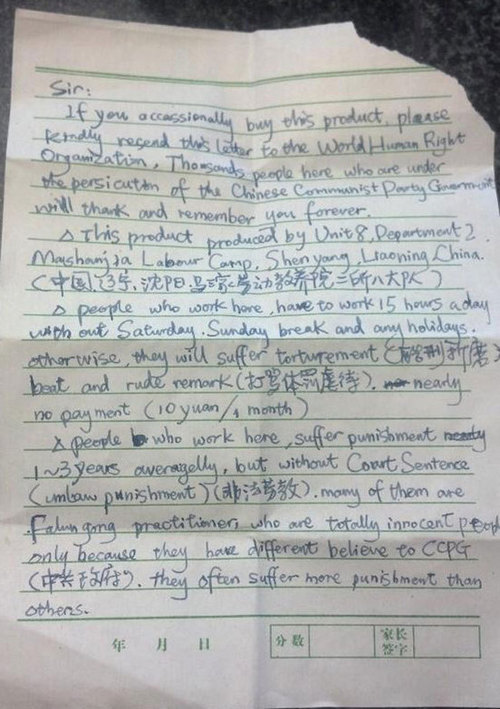 Sir:
If you occassionally buy this product, please
kindly resend this letter to the World Human Right
Organization. Thousands people here who are under
the persicution of the Chinese Communist Party Government
will thank and remember you forever.
△ This product produced by Unit 8, Department 2,
Mashanjia Labour Camp, Shen yang, Liaoning, China.
(中国, 辽宁, 沈阳, 马三家劳动教养院二所八大队)
△ people who work here, have to work 15 hours a day
with out Saturday, Sunday break and any holidays,
otherwise, they will suffer torturement (酷刑折磨)
beat and rude remark (打骂体罚虐待). nearly
no payment (10 yuan/1 month)
△ people who work here, suffer punishment
1~3 years averagelly, but without Court Sentence
(unlaw punishment) (非法劳教). many of them are
Falungong practitioner, who are totally innocent people
only because they have different believe to CCPG
(中共政府). they often suffer more punishment than
others.
年 月 日
分数
家长
签字